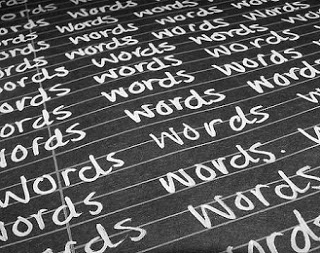 words words words
words words words
words words words
words words words
words words words
words words words
words words words
words words words
words words words
Words words words
words words.
words words
words